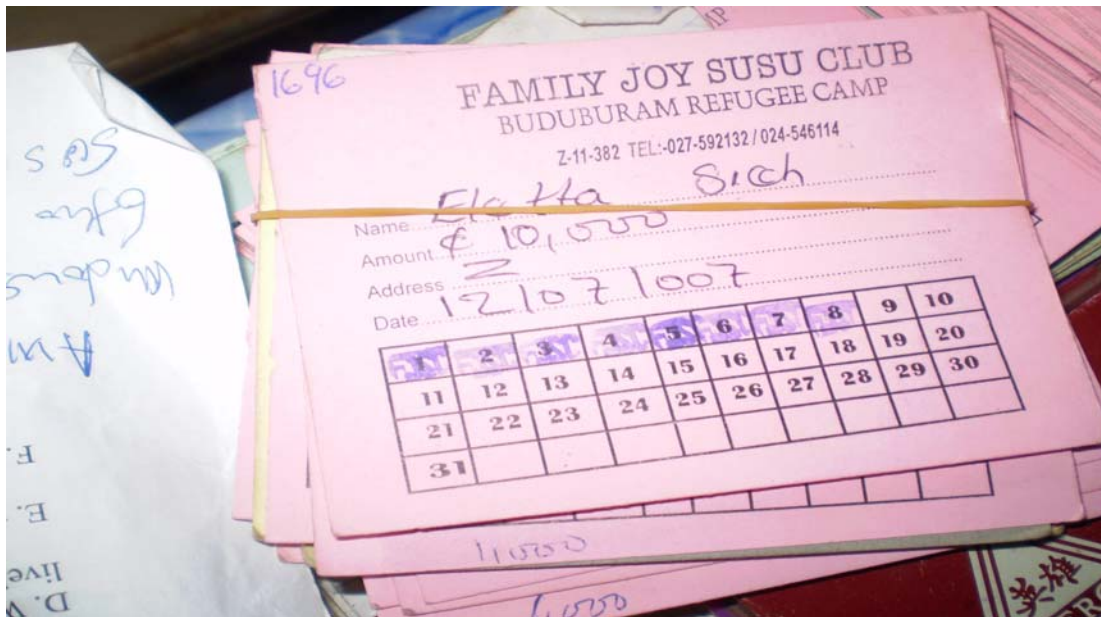 1696
FAMILY JOY SUSU CLUB
BUDUBURAM REFUGEE CAMP
Z-11-382 TEL:-027-592132/024-546114
Name
Amount ¢ 10,000
Address Z
Date 12/07/007
1 2 3 4 5 6 7 8 9 10
11 12 13 14 15 16 17 18 19 20
21 22 23 24 25 26 27 28 29 30
31
1,000
1,000
英雄
F.
E.
D.
live